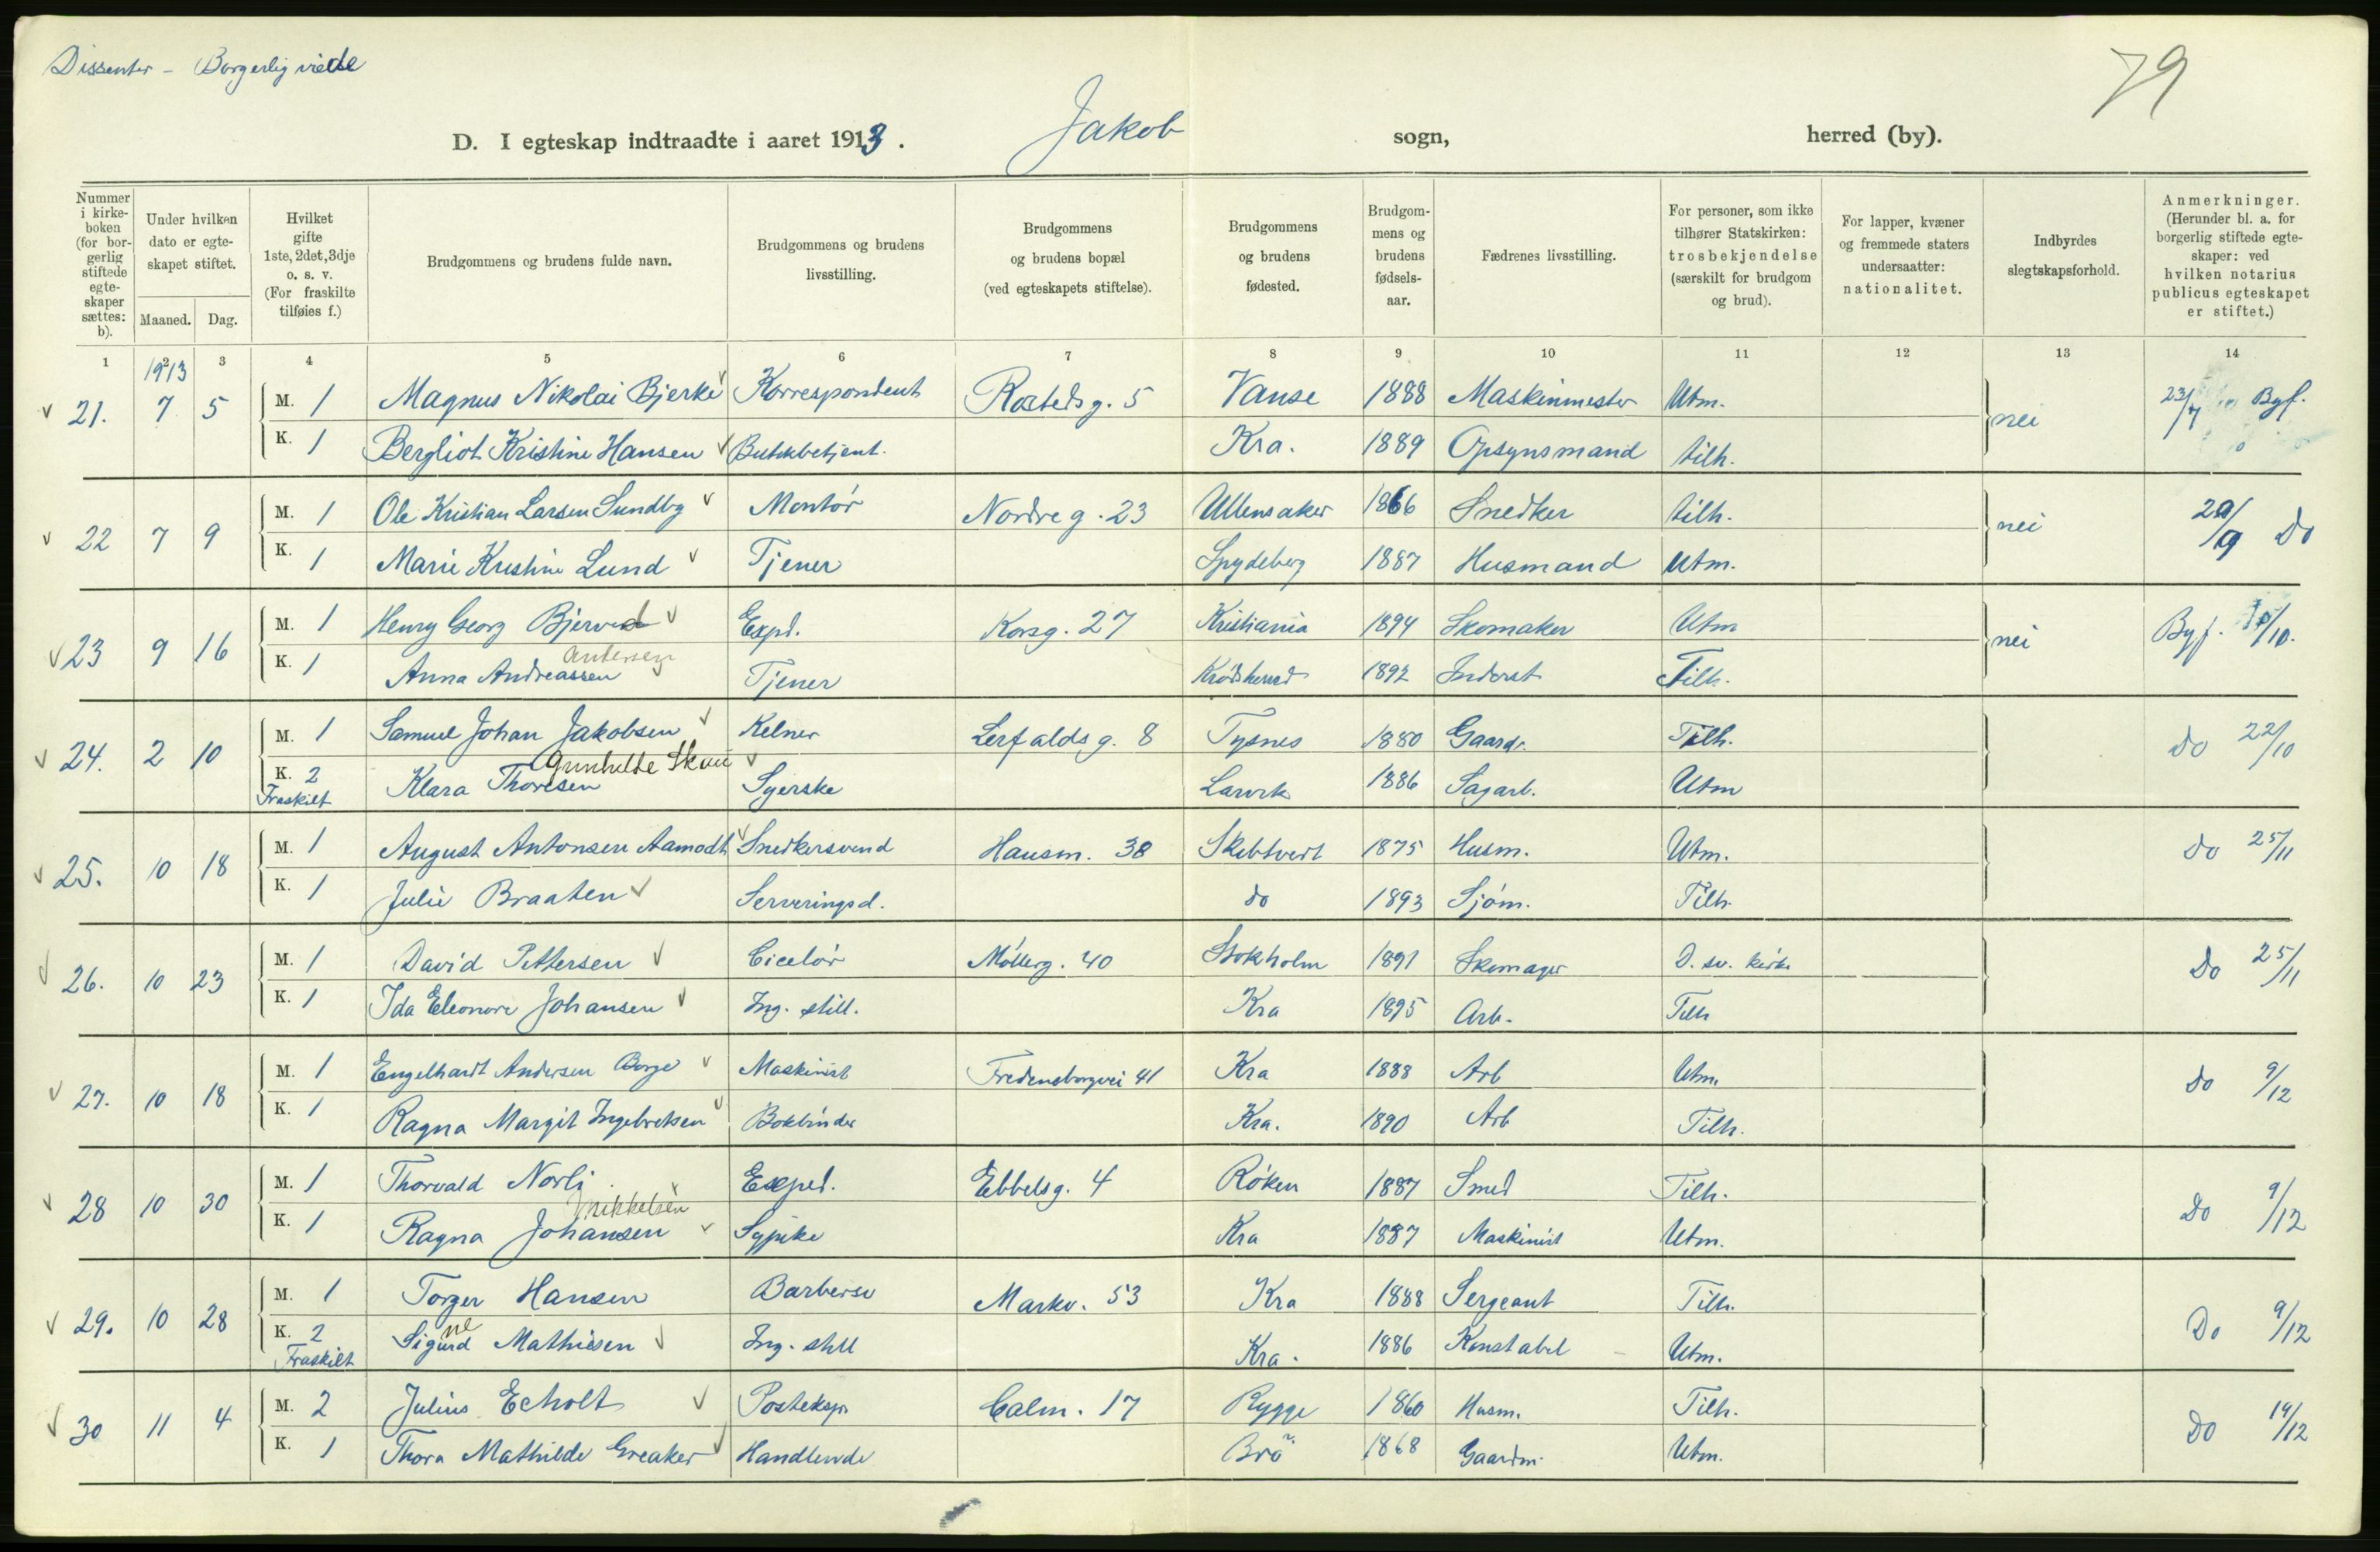 Dissenter - Borgerlig viede
79
D. I egteskap indtraadte i aaret 1913. Jakob sogn, herred (by).
Nummer i kirke-boken (for bor-gerlig stiftede egte-skaper sættes: b).
Under hvilken dato er egte-skapet stiftet.
Maaned. Dag.
Hvilket gifte 1ste, 2det, 3dje o. s. v. (For fraskilte tilføies f.)
Brudgommens og brudens fulde navn.
Brudgommens og brudens livsstilling.
Brudgommens og brudens bopæl (ved egteskapets stiftelse).
Brudgommens og brudens fødested.
Brudgom-mens og brudens fødsels-aar.
Fædrenes livsstilling.
For personer, som ikke tilhører Statskirken: trosbekjendelse (særskilt for brudgom og brud).
For lapper, kvæner og fremmede staters undersaatter: nationalitet.
Indbyrdes slegtskapsforhold.
Anmerkninger. (Herunder bl. a. for borgerlig stiftede egte-skaper: ved hvilken notarius publicus egteskapet er stiftet.)
1 2 3 4 5 6 7 8 9 10 11 12 13 14
1913
21. 7 5 M. 1 Magnus Nikolai Bjerke Korrespondent Rostedsg. 5 Vanse 1888 Maskinmester Utm. nei 23/7 Byf.
K. 1 Bergliot Kristine Hansen Butikbetjent. Kra. 1889 Opsynsmand tilh.
22 7 9 M. 1 Ole Kristian Larsen Sundby Montør Nordreg. 23 Ullensaker 1866 Snedker tilh. nei 29/9 Do
K. 1 Marie Kristine Lund Tjener Spydeberg 1887 Husmand Utm.
23 9 16 M. 1 Henry Georg Expd. Korsg. 27 Kristiania 1894 Skomaker Utm nei Byf. /10.
Andersen
K. 1 Anna Andreassen Tjener Krødsherred 1892 Inderst Tilh.
24. 2 10 M. 1 Samuel Johan Jakobsen Kelner Lerfaldsg. 8 Tysnes 1880 Gaardr. Tilh. Do 22/10
Gunhilde
K. 2 Klara Thoresen Syerske Larvik 1886 Sagarb. Utm
Fraskilt
25. 10 18 M. 1 August Antonsen Aamodt Snedkersvend Hausm. 38 Skibtvedt 1875 Husm. Utm. do 25/11
K. 1 Julie Braaten Serveringsd. do 1893 Sjøm. Tilh.
26. 10 23 M. 1 David Pettersen Ciselør Møllerg. 40 Stokholm 1891 Skomager D. sv. kirke Do 25/11
K. 1 Ida Eleonore Johansen Ing. still. Kra 1895 Arb. Tilh
27. 10 18 M. 1 Engelhardt Andersen Borge Maskinist Fredensborgvei 41 Kra 1888 Arb Utm. do 9/12
K. 1 Ragna Margit Ingebretsen Bokbinder Kra. 1890 Arb Tilh.
28 10 30 M. 1 Thorvald Norli Exped. Ebbelsg. 4 Røken 1887 Smed Tilh. Do 9/12
Mikkelsen
K. 1 Ragna Johansen Sypike Kra 1887 Maskinist Utm.
29. 10 28 M. 1 Torger Hansen Barbersv Markv. 53 Kra 1888 Sergeant Tilh. Do 9/12
ne
K. 2 Sigurd Mathisen Ing. still Kra. 1886 Konstabel Utm.
Fraskilt
30 11 4 M. 2 Julius Echolt Posteksp. Calm. 17 Rygge 1860 Husm. Tilh. Do 14/12
K. 1 Thora Mathilde Greaker Handlende 1868 Gaardm. Utm.